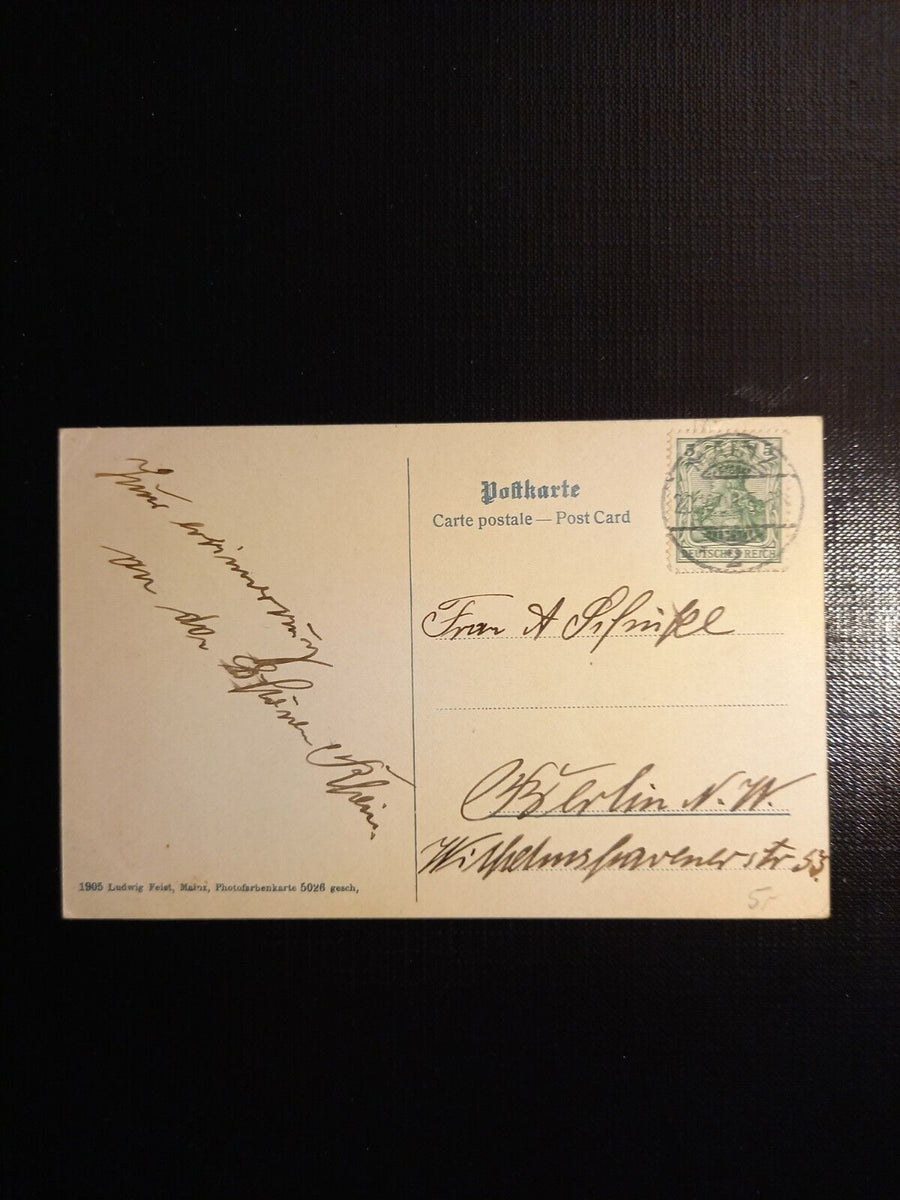 Zur erinnerung
an den
Schönen Rhein.
1905 Ludwig Feist, Mainz, Photofarbenkarte 5026 gesch,
Postkarte
Carte postale — Post Card
5 5
DEUTSCHES REICH
Frau A
Berlin N. W.
Wilhelmshavenerstr. 53
5.-